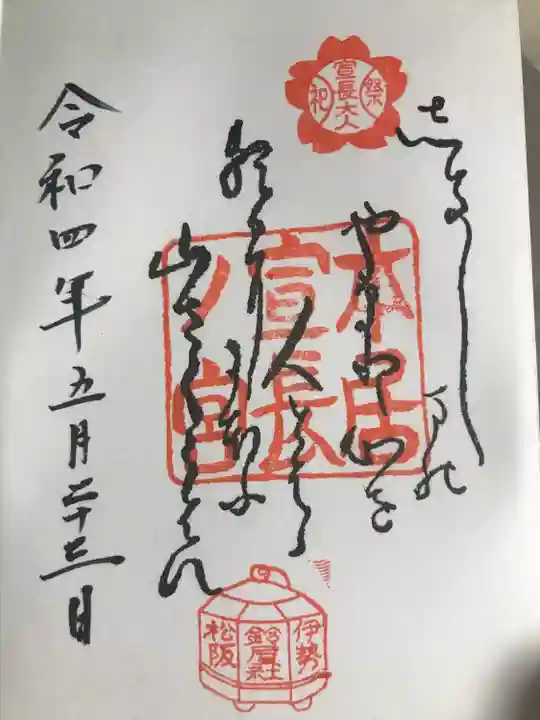 祭
宣長大人
祀
志きしまの
やまとこゝろを
人とはゝ
朝日ににほふ
山さくらはな
本居
宣長
ノ宮
伊勢
鈴屋社
松阪
令和四年五月二十三日